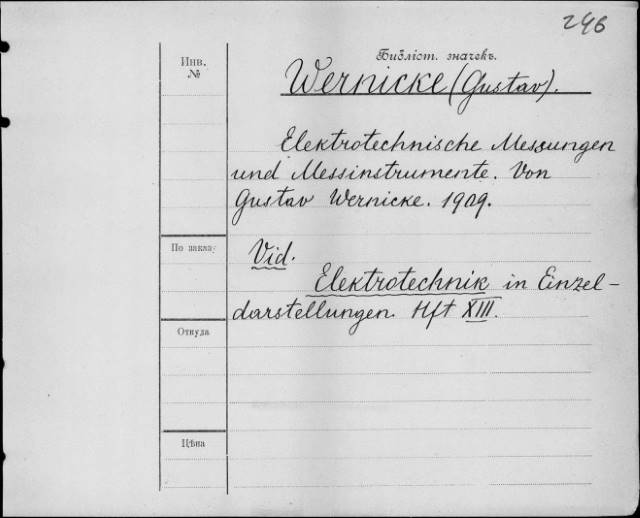 246
Инв.
№
Библіот. значекъ.
Wernicke (Gustav).
Elektrotechnische Messungen
und Messinstrumente. Von
Gustav Wernicke. 1909.
По заказу
Vid.
Elektrotechnik in Einzel-
darstellungen. Hft XIII.
Откуда
Цѣна